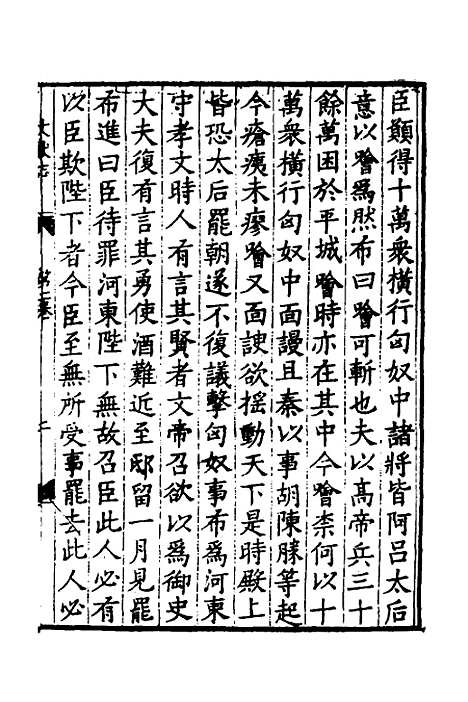 臣願得十萬衆橫行匈奴中諸將皆阿呂太后
意以噲爲然布曰噲可斬也夫以高帝兵三十
餘萬困於平城噲時亦在其中今噲柰何以十
萬衆橫行匈奴中面謾且秦以事胡陳勝等起
今瘡痍未瘳噲又面諛欲搖動天下是時殿上
皆恐太后罷朝遂不復議擊匈奴事布爲河東
守孝文時人有言其賢者文帝召欲以爲御史
大夫復有言其勇使酒難近至邸留一月見罷
布進曰臣待罪河東陛下無故召臣此人必有
以臣欺陛下者今臣至無所受事罷去此人必